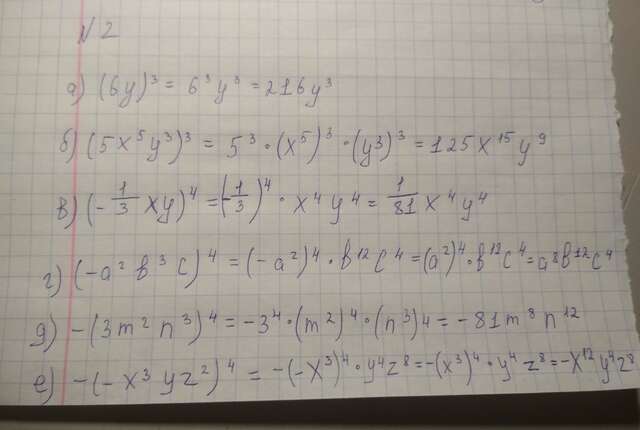 № 2
а) (6y)³ = 6³y³ = 216y³
б) (5x⁵y³)³ = 5³ · (x⁵)³ · (y³)³ = 125x¹⁵y⁹
в) (-1/3 xy)⁴ = (-1/3)⁴ · x⁴y⁴ = 1/81 x⁴y⁴
г) (-a²b³c)⁴ = (-a²)⁴ · b¹²c⁴ = (a²)⁴ · b¹²c⁴ = a⁸b¹²c⁴
д) -(3m²n³)⁴ = -3⁴ · (m²)⁴ · (n³)4 = -81m⁸n¹²
е) -(-x³yz²)⁴ = -(-x³)⁴ · y⁴z⁸ = -(x³)⁴ · y⁴z⁸ = -x¹²y⁴z⁸